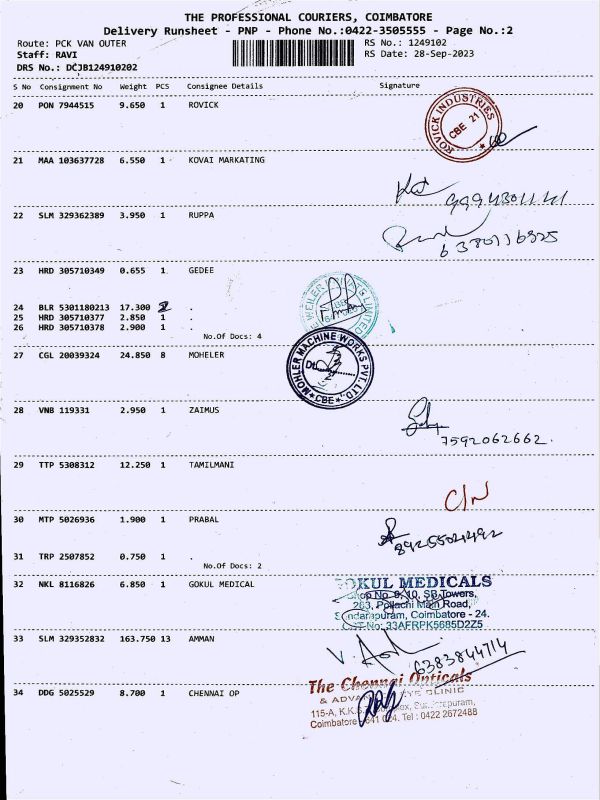 THE PROFESSIONAL COURIERS, COIMBATORE
Delivery Runsheet - PNP - Phone No.:0422-3505555 - Page No.:2
Route: PCK VAN OUTER RS No.: 1249102
Staff: RAVI RS Date: 28-Sep-2023
DRS No.: DCJB124910202
S No Consignment No Weight PCS Consignee Details Signature
20 PON 7944515 9.650 1 ROVICK
ROVICK INDUSTRIES
CBE 21
21 MAA 103637728 6.550 1 KOVAI MARKATING
9994301141
22 SLM 329362389 3.950 1 RUPPA
6380116925
23 HRD 305710349 0.655 1 GEDEE
24 BLR 5301180213 17.300 2 .
25 HRD 305710377 2.850 1 .
26 HRD 305710378 2.900 1 .
No.Of Docs: 4
WEILER LIMITED
27 CGL 20039324 24.850 8 MOHELER
MOHLER MACHINE WORKS PVT. LTD.
Dt.
CBE
28 VNB 119331 2.950 1 ZAIMUS
7592062662.
29 TTP 5308312 12.250 1 TAMILMANI
C/N
30 MTP 5026936 1.900 1 PRABAL
31 TRP 2507852 0.750 1 .
No.Of Docs: 2
32 NKL 8116826 6.850 1 GOKUL MEDICAL
GOKUL MEDICALS
Shop No. 9, 10, SB Towers,
263, Pollachi Main Road,
Sundarapuram, Coimbatore - 24.
GST No: 33AFRPK5685D2Z5
33 SLM 329352832 163.750 13 AMMAN
6383844714
34 DDG 5025529 8.700 1 CHENNAI OP
The Chennai Opticals
& ADVANCED EYE CLINIC
115-A, K.K.
Coimbatore - 641 024. Tel : 0422 2672488